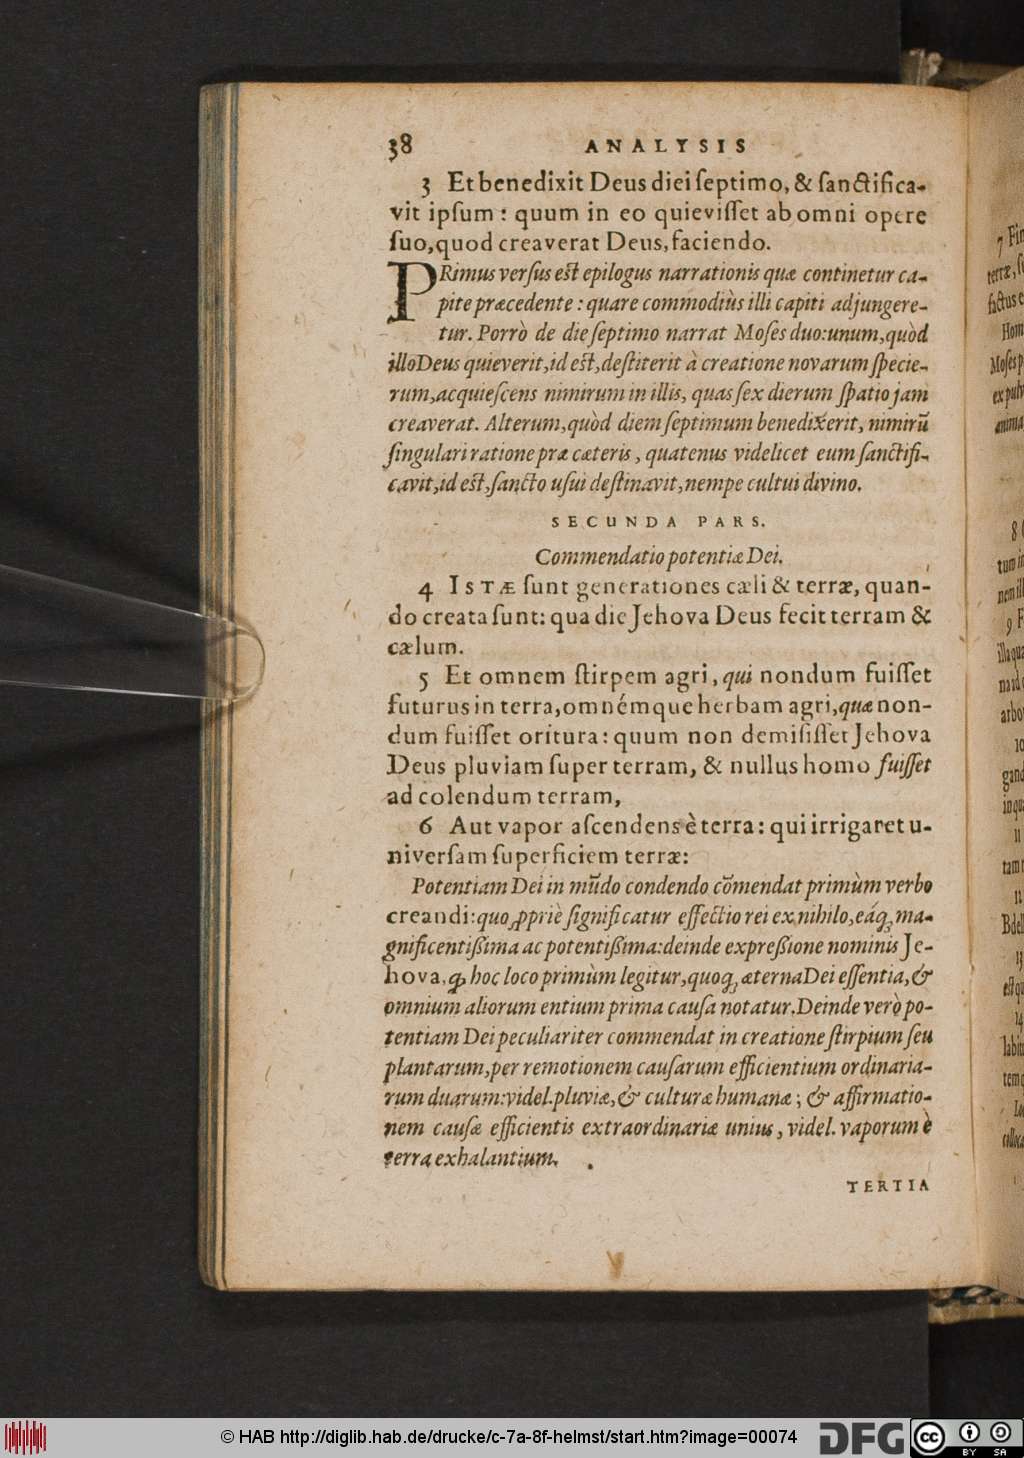 38 ANALYSIS
3 Et benedixit Deus diei ſeptimo, & ſanctifica-
vit ipſum : quum in eo quieviſſet ab omni opere
ſuo, quod creaverat Deus, faciendo.
PRimus verſus eſt epilogus narrationis quæ continetur ca-
pite præcedente : quare commodiùs illi capiti adjungere-
tur. Porrò de die ſeptimo narrat Moſes duo: unum, quòd
illo Deus quieverit, id eſt, deſtiterit à creatione novarum ſpecie-
rum, acquieſcens nimirum in illis, quas ſex dierum ſpatio jam
creaverat. Alterum, quòd diem ſeptimum benedixerit, nimirũ
ſingulari ratione præ cæteris, quatenus videlicet eum ſanctifi-
cavit, id eſt, ſancto uſui deſtinavit, nempe cultui divino.
SECUNDA PARS.
Commendatio potentiæ Dei.
4 ISTÆ ſunt generationes cæli & terræ, quan-
do creata ſunt: qua die Jehova Deus fecit terram &
cælum.
5 Et omnem ſtirpem agri, qui nondum fuiſſet
futurus in terra, omnémque herbam agri, quæ non-
dum fuiſſet oritura: quum non demiſiſſet Jehova
Deus pluviam ſuper terram, & nullus homo fuiſſet
ad colendum terram,
6 Aut vapor aſcendens è terra: qui irrigaret u-
niverſam ſuperficiem terræ:
Potentiam Dei in mũdo condendo cõmendat primùm verbo
creandi: quo ꝓpriè ſignificatur effectio rei ex nihilo, eáq; ma-
gnificentißima ac potentißima: deinde expreßione nominis Je-
hova, ꝙ hoc loco primùm legitur, quoq; æterna Dei eſſentia, &
omnium aliorum entium prima cauſa notatur. Deinde verò po-
tentiam Dei peculiariter commendat in creatione ſtirpium ſeu
plantarum, per remotionem cauſarum efficientium ordinaria-
rum duarum: videl. pluviæ, & culturæ humanæ ; & affirmatio-
nem cauſæ efficientis extraordinariæ unius, videl. vaporum è
terra exhalantium.
TERTIA
7 Fin
terræ, ſ
factus e
Hom
Moſes p
ex pulv
anima
8
tum in
nem ill
9 F
illa qua
na ad
arbo
10
gand
in qu
11
tam
12
Bdel
13
eſt qu
14
labit
tem
Lo
colloca
© HAB http://diglib.hab.de/drucke/c-7a-8f-helmst/start.htm?image=00074
DFG
cc BY SA